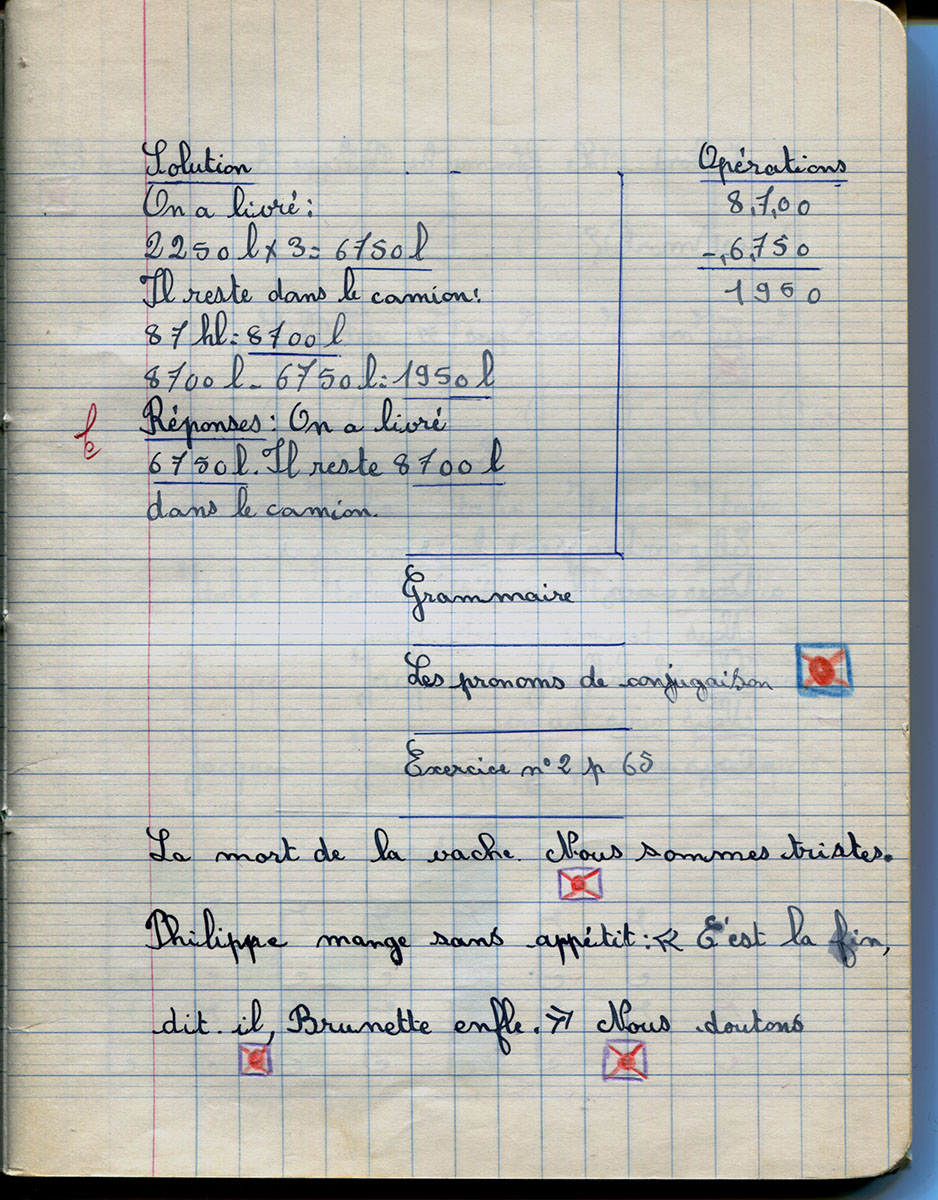 Solution
On a livré :
2250 l x 3 = 6750 l
Il reste dans le camion :
87 hl = 8700 l
8700 l - 6750 l = 1950 l
Réponses : On a livré
6750 l. Il reste 8700 l
dans le camion.
Opérations
8,7,00
-,6,750
1950
Grammaire
Les pronoms de conjugaison
Exercice n° 2 p 65
La mort de la vache. Nous sommes tristes.
Philippe mange sans appétit : « C'est la fin,
dit-il, Brunette enfle. » Nous doutons